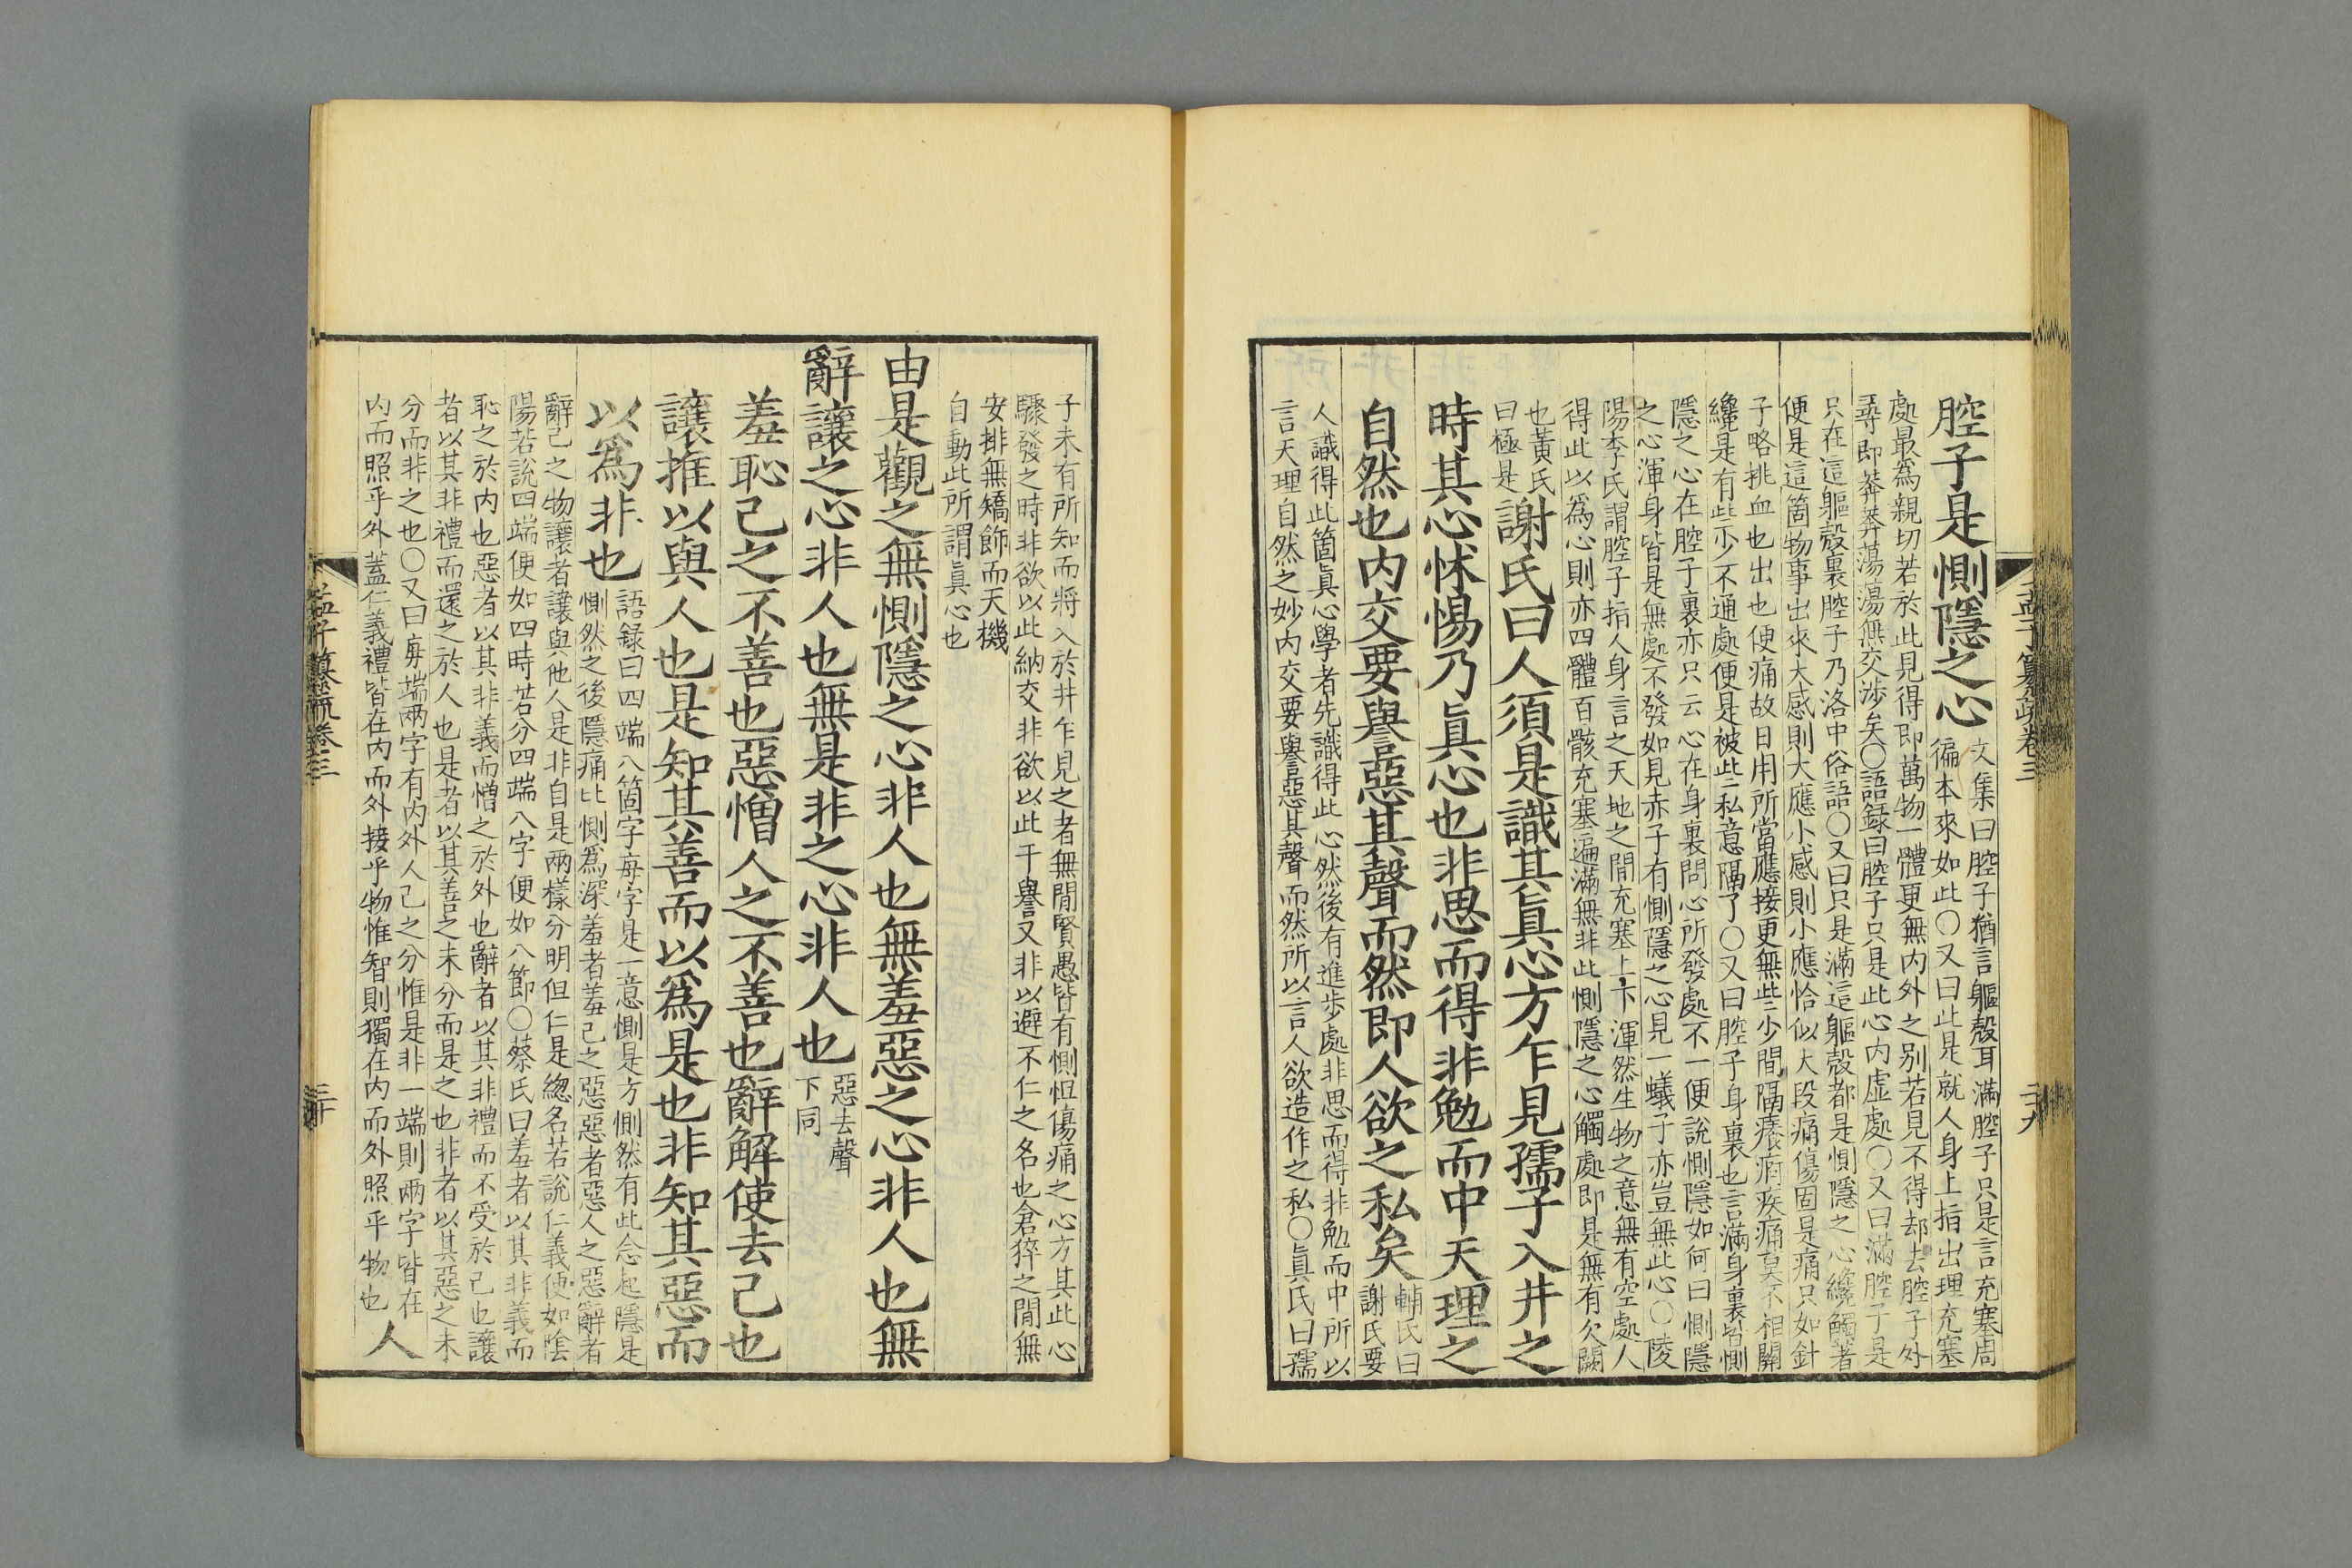 腔子是惻隱之心
文集曰腔子猶言軀殼耳滿腔子只是言充塞周
徧本來如此〇又曰此是就人身上指出理充塞
處最爲親切若於此見得即萬物一體更無内外之别若見不得却去腔子外
尋即莽莽蕩蕩無交涉矣〇語録曰腔子只是此心内虚處〇又曰滿腔子是
只在這軀殼裏腔子乃洛中俗語〇又曰只是滿這軀殼都是惻隱之心纔觸著
便是這箇物事出來大感則大應小感則小應恰似大段痛傷固是痛只如針
子略挑血也出也便痛故日用所當應接更無些少間隔癢痾疾痛莫不相關
纔是有些少不通處便是被些私意隔了〇又曰腔子身裏也言滿身裏皆惻
隱之心在腔子裏亦只云心在身裏問心所發處不一便說惻隱如何曰惻隱
之心渾身皆是無處不發如見赤子有惻隱之心見一蟻子亦豈無此心〇陵
陽李氏謂腔子指人身言之天地之間充塞上下渾然生物之意無有空處人
得此以爲心則亦四體百骸充塞遍滿無非此惻隱之心觸處即是無有欠闕
也黃氏
曰極是
謝氏曰人須是識其眞心方乍見孺子入井之
時其心怵惕乃眞心也非思而得非勉而中天理之
自然也内交要譽惡其聲而然即人欲之私矣
輔氏曰
謝氏要
人識得此箇眞心學者先識得此心然後有進步處非思而得非勉而中所以
言天理自然之妙内交要譽惡其聲而然所以言人欲造作之私〇眞氏曰孺
孟子纂疏卷三
二十九
子未有所知而將入於井乍見之者無間賢愚皆有惻怛傷痛之心方其此心
驟發之時非欲以此納交非欲以此干譽又非以避不仁之名也倉猝之間無
安排無矯飾而天機
自動此所謂眞心也
由是觀之無惻隱之心非人也無羞惡之心非人也無
辭讓之心非人也無是非之心非人也
惡去聲
下同
羞恥己之不善也惡憎人之不善也辭解使去己也
讓推以與人也是知其善而以爲是也非知其惡而
以爲非也
語録曰四端八箇字每字是一意惻是方惻然有此念起隱是
惻然之後隱痛比惻爲深羞者羞己之惡惡者惡人之惡辭者
辭己之物讓者讓與他人是非自是兩樣分明但仁是總名若說仁義便如陰
陽若說四端便如四時若分四端八字便如八節〇蔡氏曰羞者以其非義而
恥之於内也惡者以其非義而憎之於外也辭者以其非禮而不受於己也讓
者以其非禮而還之於人也是者以其善之未分而是之也非者以其惡之未
分而非之也〇又曰毎端兩字有内外人己之分惟是非一端則兩字皆在
内而照乎外蓋仁義禮皆在内而外接乎物惟智則獨在内而外照乎物也
人
孟子纂疏卷三
三十